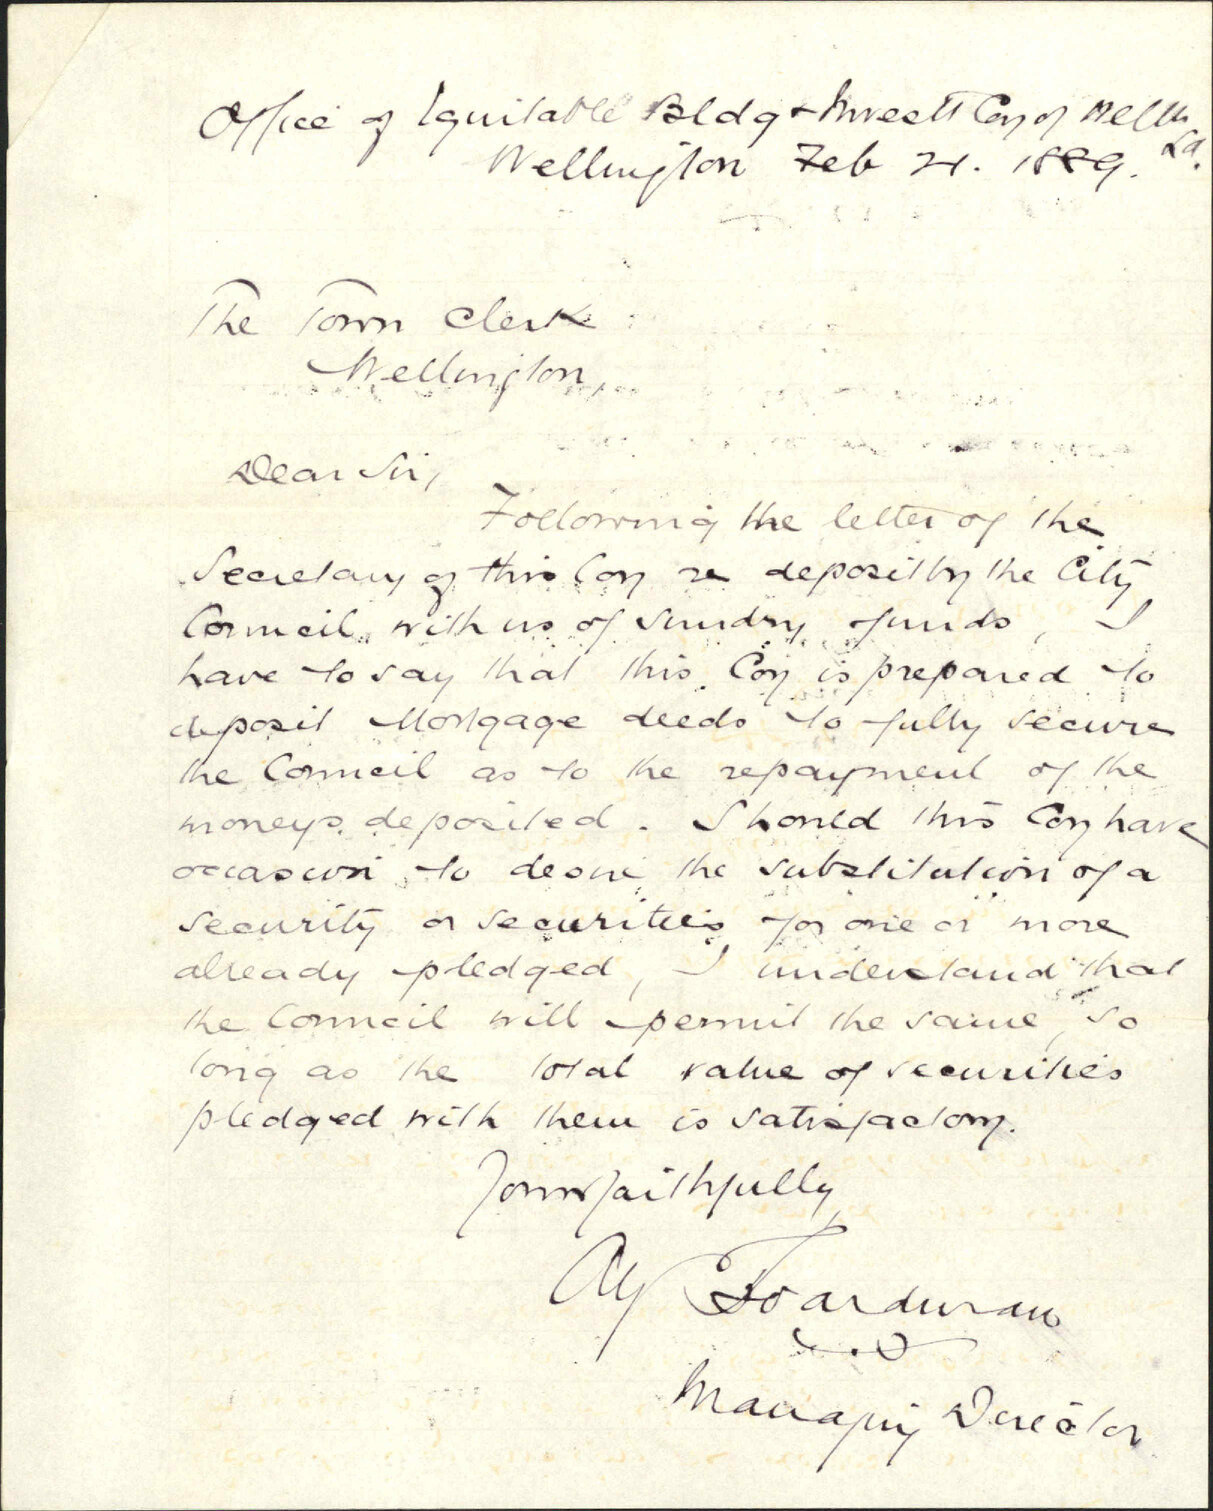 Office of Equitable Bldg & Investt Coy of Welltn
Ld.
Wellington Feb 21. 1889.
The Town Clerk
Wellington,
Dear Sir,
Following the letter of the
Secretary of this Coy re deposit by the City
Council with us of sundry funds, I
have to say that this Coy is prepared to
deposit Mortgage deeds to fully secure
the Council as to the repayment of the
moneys deposited. Should this Coy have
occasion to desire the substitution of a
security or securities for one or more
already pledged, I understand that
the Council will permit the same, so
long as the total value of securities
pledged with them is satisfactory.
Yours faithfully
Managing Director